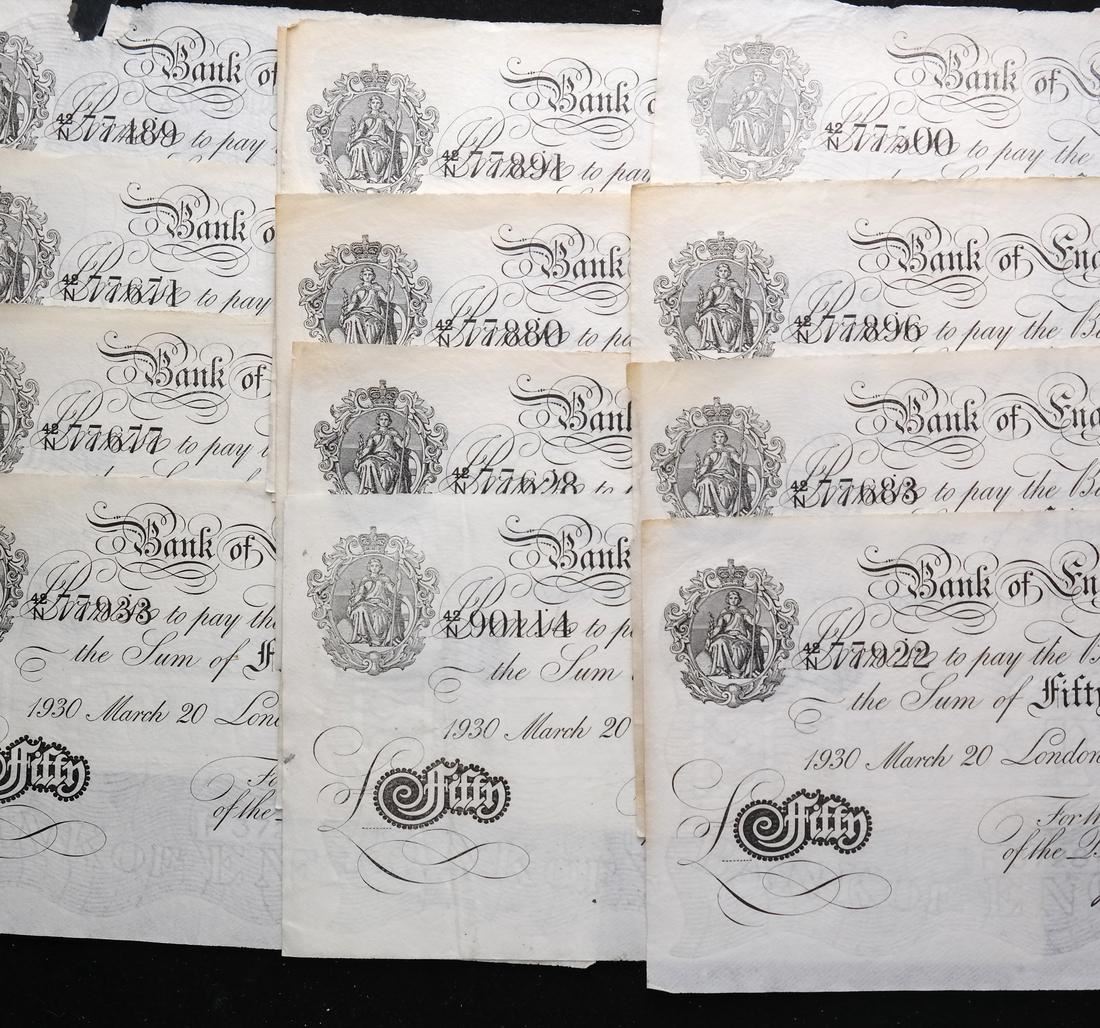 Bank of
42/N 77489 to pay
Bank
42/N 77671 to pay
Bank of
42/N 77677 to pay
Bank of
42/N 77933 to pay the
the Sum of
1930 March 20 Lon
Fifty
of the
Bank
42/N 77891 to pay
Bank
42/N 77880 to
Bank
42/N 77628
Bank
42/N 90114 to
the Sum
1930 March 20
£ Fifty
Bank of
42/N 77500 to pay the
Bank of Eng
42/N 77896 to pay the
Bank of Eng
42/N 77683 to pay the
Bank of Eng
42/N 77922 to pay the
the Sum of Fifty
1930 March 20 London
£ Fifty
For
of the